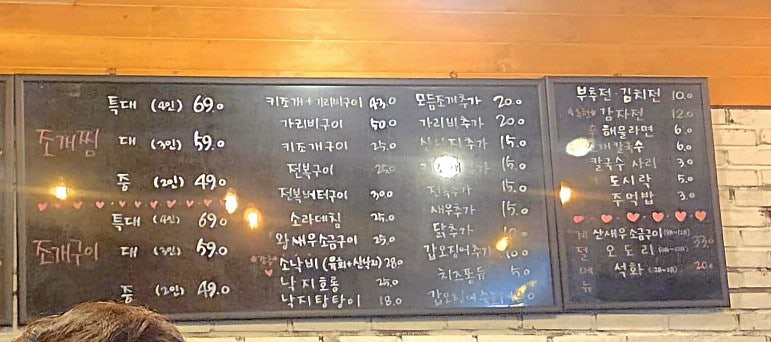 조개찜
특대 (4인) 69.0
대 (3인) 59.0
중 (2인) 49.0
조개구이
특대 (4인) 69.0
대 (3인) 59.0
중 (2인) 49.0
키조개+가리비구이 43.0
가리비구이 50.0
키조개구이 25.0
전복구이 25.0
전복버터구이 30.0
소라데침 25.0
왕새우소금구이 25.0
소낙비 (육회+산낙지) 28.0
낙지호롱 25.0
낙지탕탕이 18.0
모듬조개추가 20.0
가리비추가 20.0
산낙지추가 15.0
15.0
전복추가 15.0
새우추가 15.0
닭추가 10.0
갑오징어추가 10.0
치즈퐁듀 5.0
갑오징어
부추전 김치전 10.0
감자전 12.0
해물라면 6.0
조개칼국수 6.0
칼국수 사리 3.0
도시락 5.0
주먹밥 3.0
계절메뉴
산새우소금구이
오도리 33.0
석화 20.0